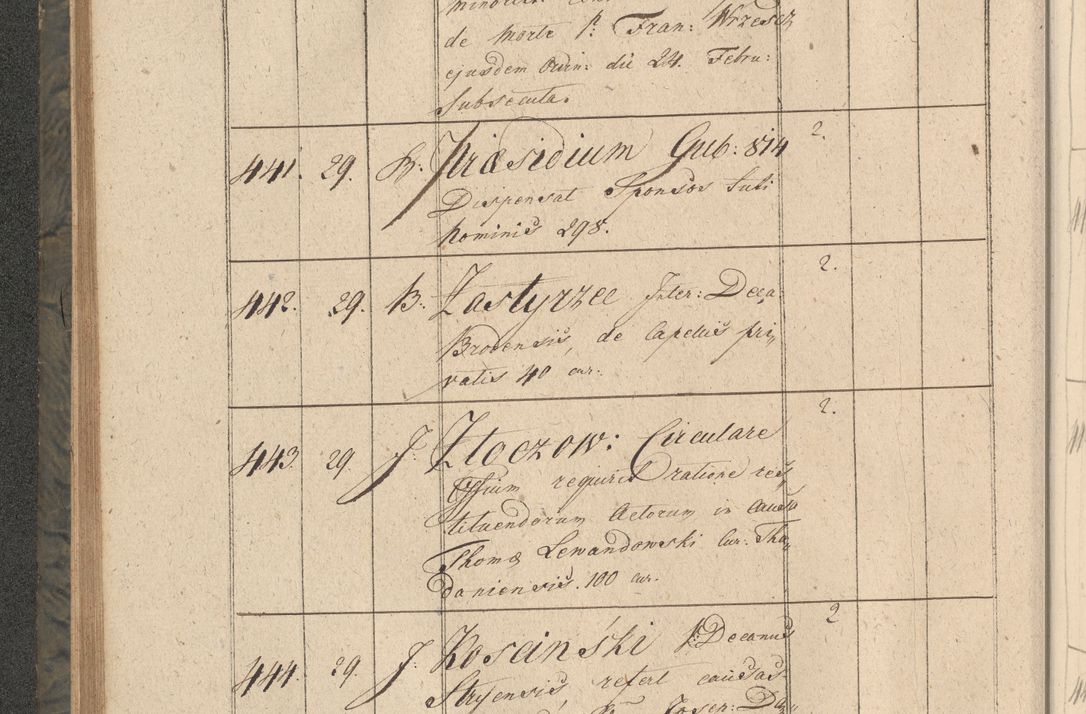 de morte P: Fran: Wrzesz
ejusdem Ordin: die 24. Febru:
Subsecuta.
441. 29. B. Præsidium Gub: 814 2.
Dispensat Sponsos Subi
hominis 298.
442. 29. B. Zastyrzec Inter: Deca 2.
Brodensis, de Capellis pri,
vatis 40 cur.
443. 29. J. Złoczow: Circulare 2.
Offium requirit ratione res,
tituendorum Actorum in causa
Thomæ Lewandowski Cur: Tha,
daniensis. 100 cur.
444. 29. J. Kosciński P: Decanus 2
Stryensis, refert causas
Joser: